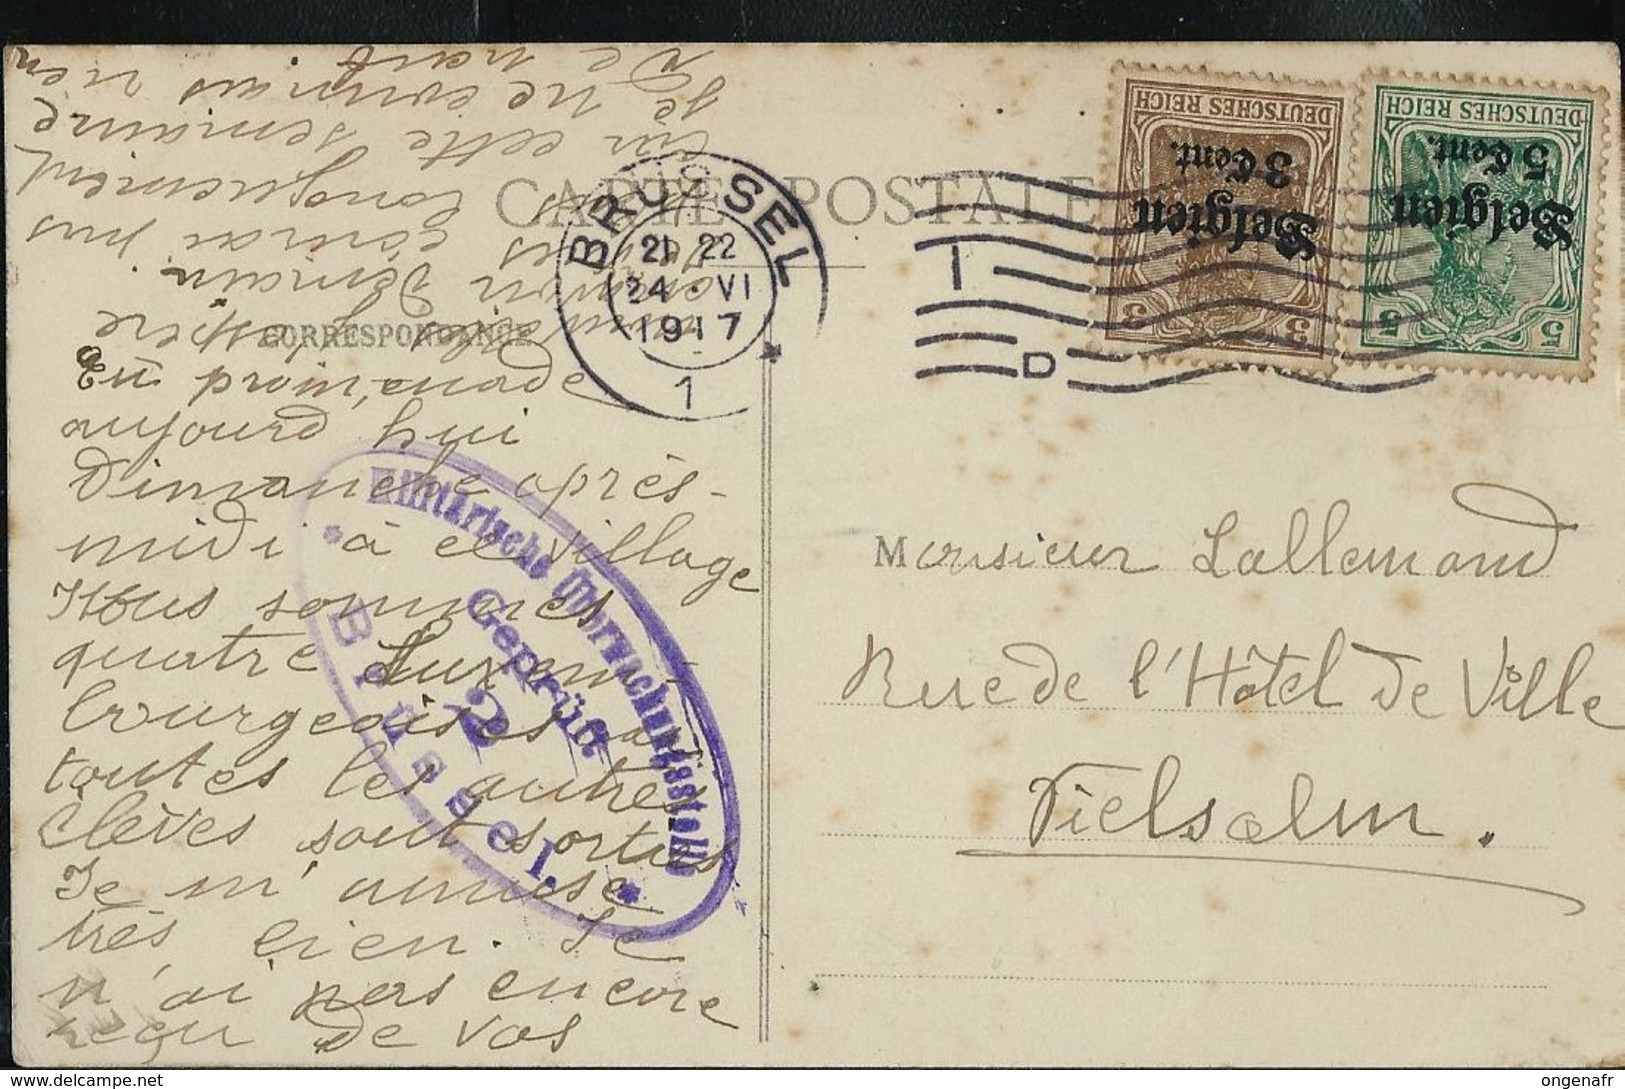 CARTE POSTALE
CORRESPONDANCE
BRUSSEL
21 22
24 · VI
1917
1
I
D
DEUTSCHES REICH
Belgien
3 Cent.
3 3
DEUTSCHES REICH
Belgien
5 Cent.
5 5
En promenade
aujourd'hui
Dimanche après-
midi à ce village
Nous sommes
quatre Luxem-
bourgeoises
toutes les autres
élèves sont sorties
Je m'amuse
très bien. Je
n'ai pas encore
reçu de vos
Demain
J'écrirai plus
longuement
car cette semaine
je ne comprais rien
De
Militärische Überwachungsstelle
Geprüft
2
Brüssel.
Monsieur Lallemand
Rue de l'Hôtel de Ville
Vielsalm.
delcampe.net
ongenafr